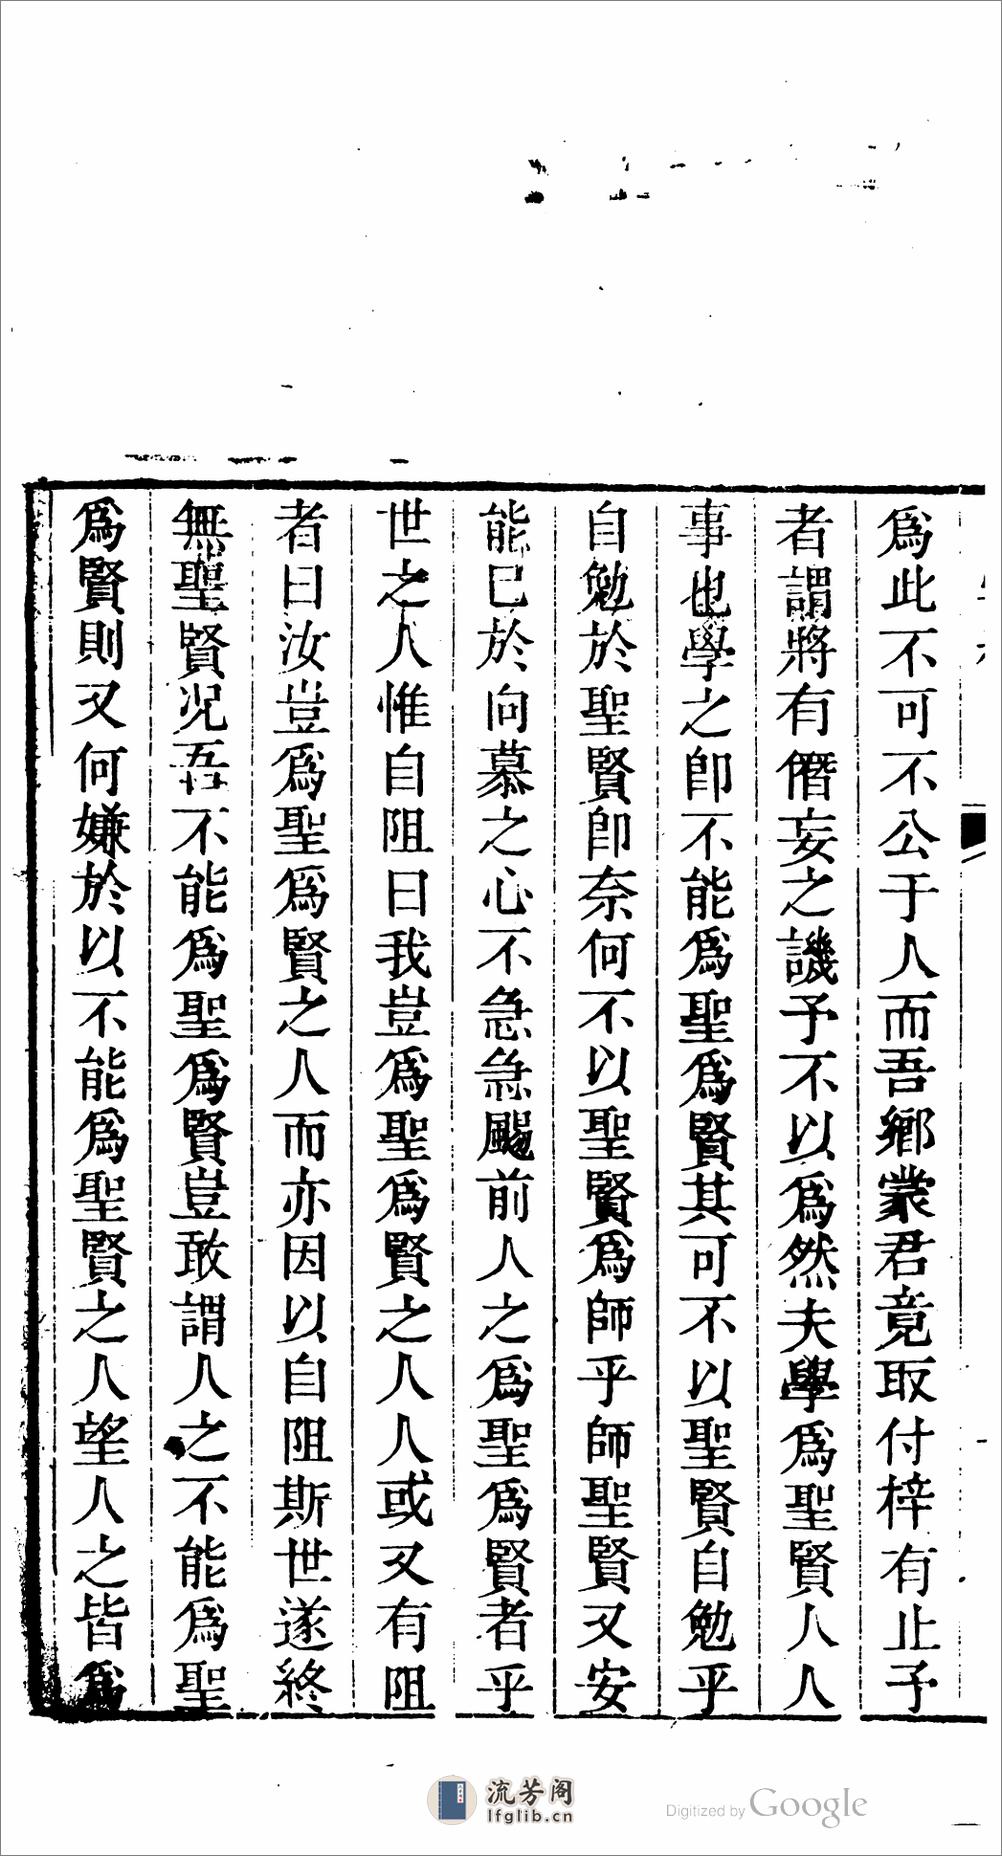 爲此不可不公于人而吾鄉裳君竟取付梓有止予
者謂將有僭妄之譏予不以爲然夫學爲聖賢人人
事也學之卽不能爲聖爲賢其可不以聖賢自勉乎
自勉於聖賢卽奈何不以聖賢爲師乎師聖賢又安
能已於向慕之心不急急颺前人之爲聖爲賢者乎
世之人惟自阻曰我豈爲聖爲賢之人人或又有阻
者曰汝豈爲聖爲賢之人而亦因以自阻斯世遂終
無聖賢况吾不能爲聖爲賢豈敢謂人之不能爲聖
爲賢則又何嫌於以不能爲聖賢之人望人之皆爲
流芳阁
lfglib.cn
Digitized by Google